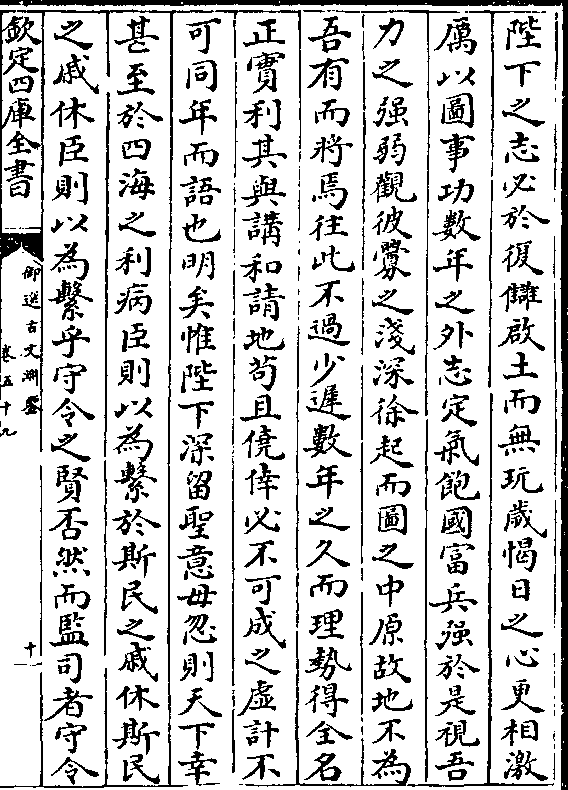 陛下之志必於復讎啟土而無玩歲愒日之心更相激
厲以圖事功數年之外志定氣飽國富兵强於是視吾
力之强弱觀彼釁之淺深徐起而圖之中原故地不為
吾有而將焉往此不過少遲數年之久而理勢得全名
正實利其與講和請地苟且僥倖必不可成之虛計不
可同年而語也明矣惟陛下深留聖意毋忽則天下幸
甚至於四海之利病臣則以為繫於斯民之戚休斯民
之戚休臣則以為繫乎守令之賢否然而監司者守令
欽定四庫全書
御選古文淵鑒
卷五十九
十